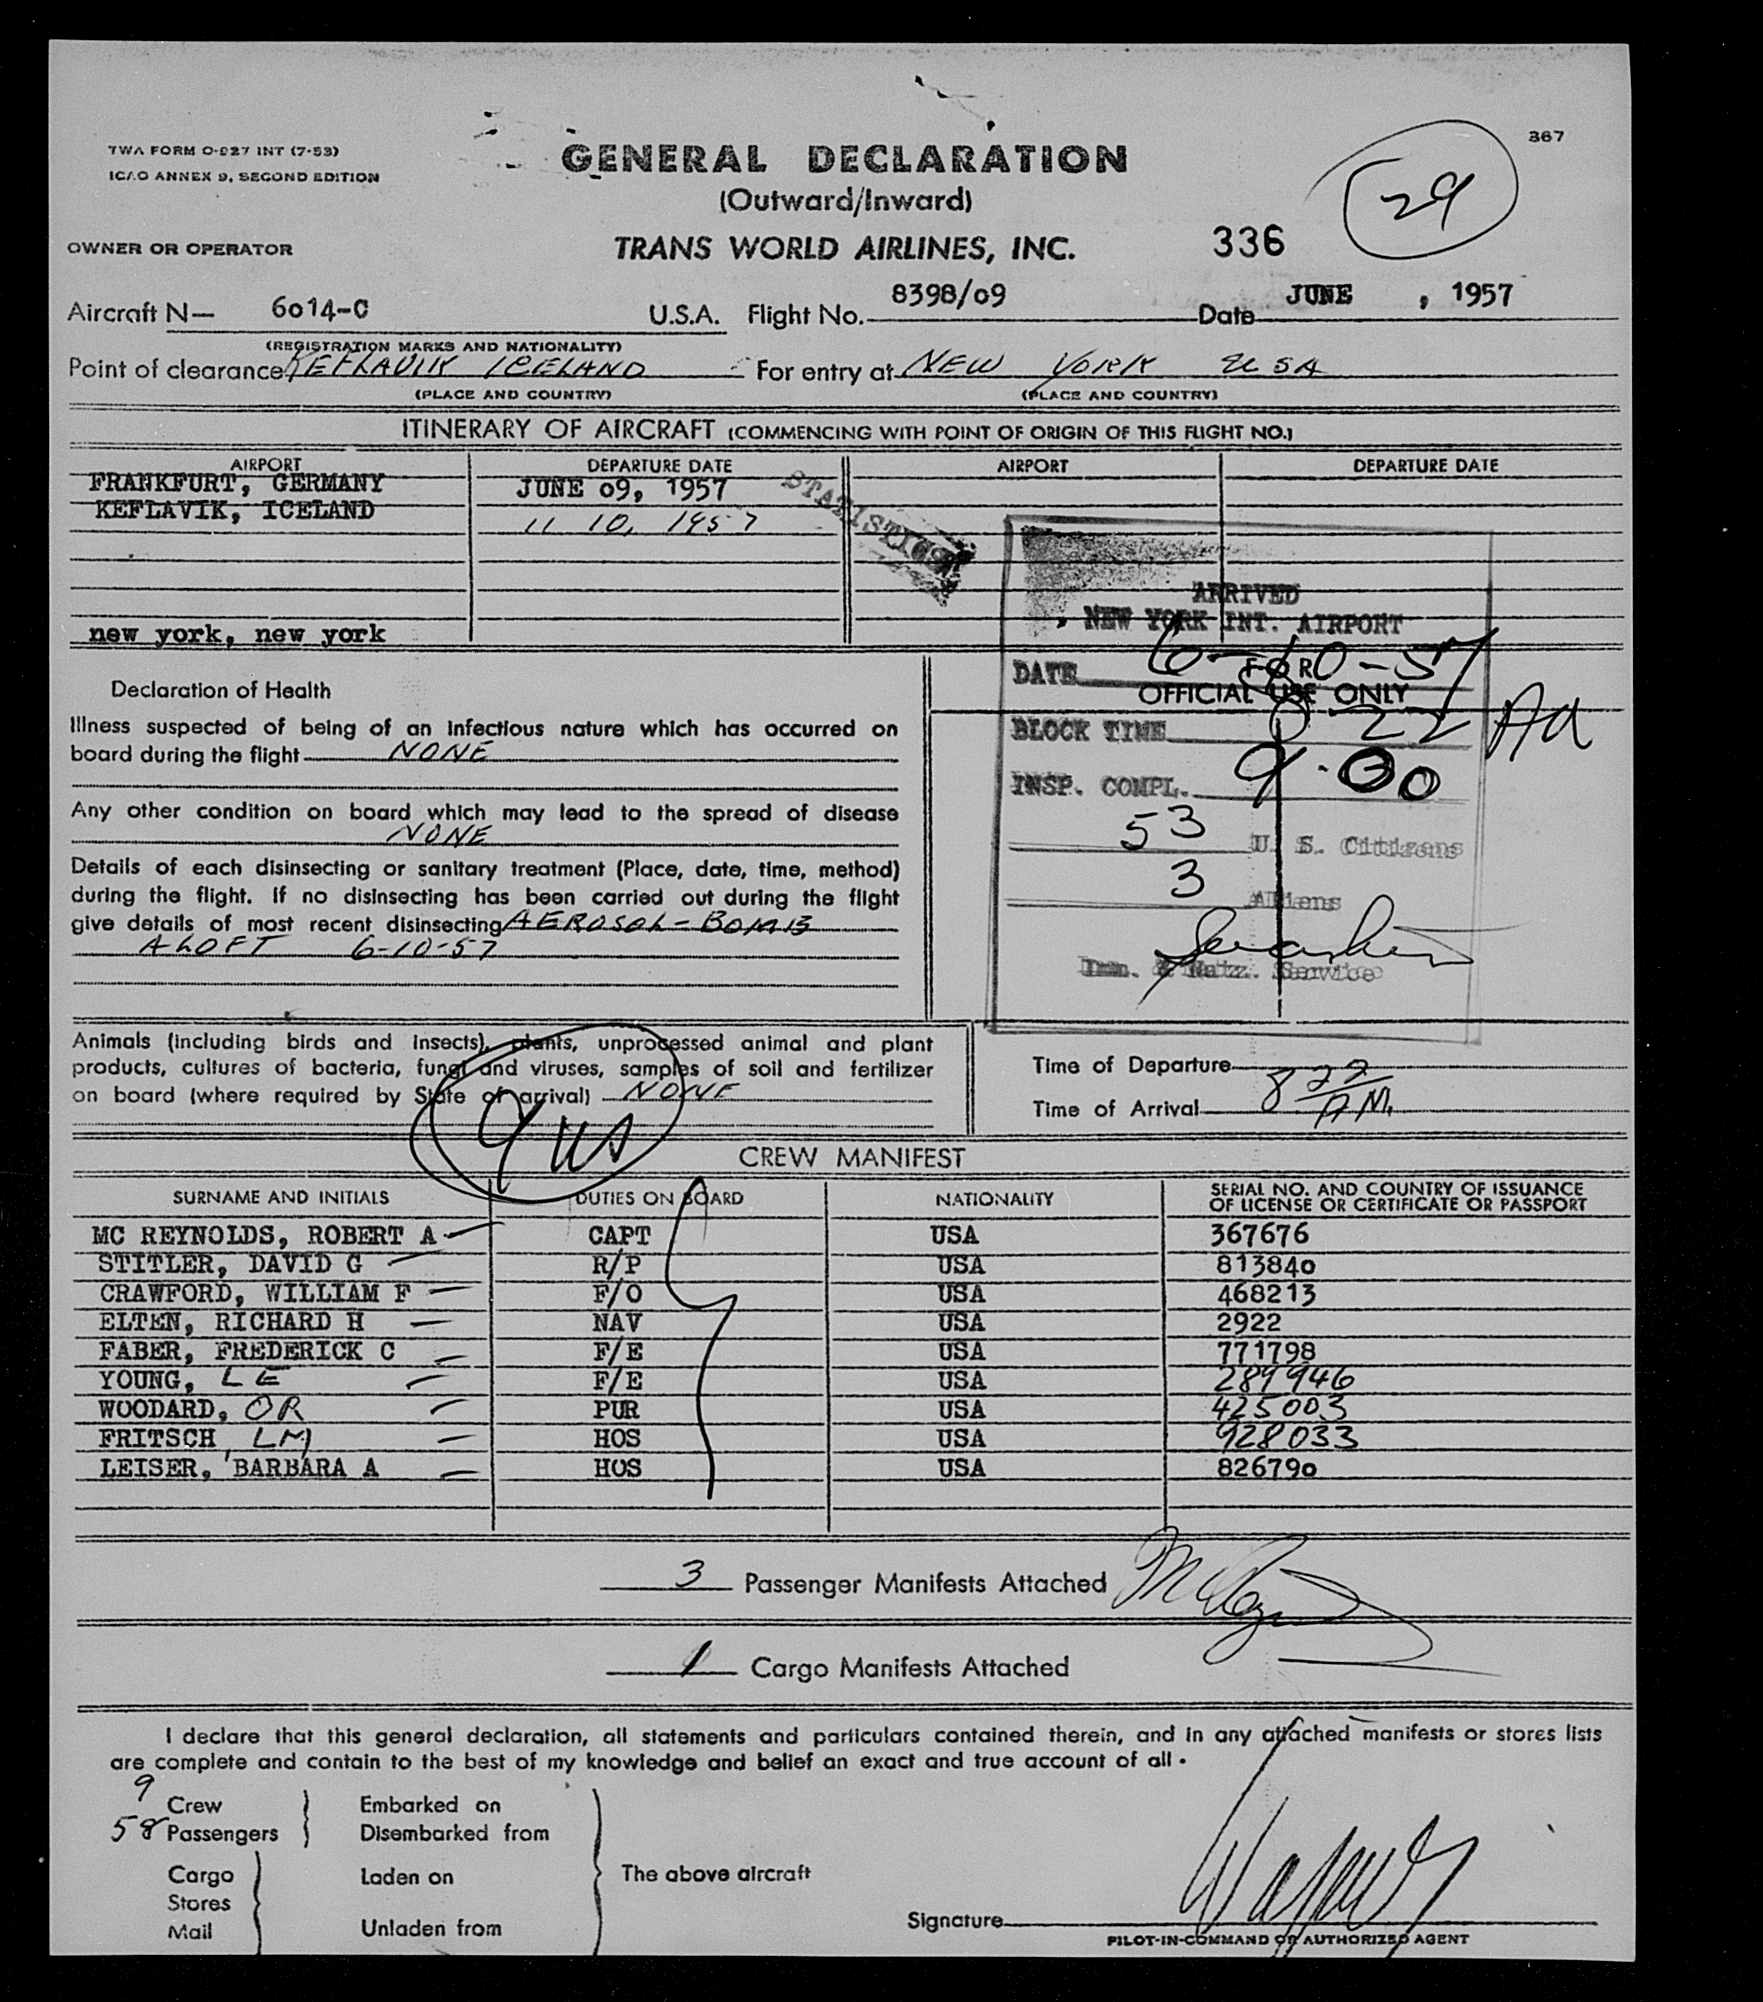 367
TWA FORM O-927 INT (7-53)
ICAO ANNEX 9, SECOND EDITION
GENERAL DECLARATION
(Outward/Inward)
29
OWNER OR OPERATOR
TRANS WORLD AIRLINES, INC.
336
Aircraft N— 6014-C U.S.A. Flight No. 8398/09 Date JUNE , 1957
(REGISTRATION MARKS AND NATIONALITY)
Point of clearance KEFLAVIK ICELAND For entry at NEW YORK USA
(PLACE AND COUNTRY) (PLACE AND COUNTRY)
ITINERARY OF AIRCRAFT (COMMENCING WITH POINT OF ORIGIN OF THIS FLIGHT NO.)
AIRPORT DEPARTURE DATE AIRPORT DEPARTURE DATE
FRANKFURT, GERMANY JUNE 09, 1957
KEFLAVIK, ICELAND 11 10, 1957
STATISTICS
new york, new york
ARRIVED
NEW YORK INT. AIRPORT
DATE 6-10-57
FOR
OFFICIAL USE ONLY
BLOCK TIME 8 22 AM
INSP. COMPL. 9.00
53 U. S. Citizens
3 Aliens
Imm. & Natz. Service
Declaration of Health
Illness suspected of being of an infectious nature which has occurred on
board during the flight NONE
Any other condition on board which may lead to the spread of disease
NONE
Details of each disinsecting or sanitary treatment (Place, date, time, method)
during the flight. If no disinsecting has been carried out during the flight
give details of most recent disinsecting AEROSOL-BOMB
ALOFT 6-10-57
Animals (including birds and insects), plants, unprocessed animal and plant
products, cultures of bacteria, fungi and viruses, samples of soil and fertilizer
on board (where required by State of arrival) NONE
9 US
Time of Departure
Time of Arrival 8 22 A.M.
CREW MANIFEST
SURNAME AND INITIALS DUTIES ON BOARD NATIONALITY SERIAL NO. AND COUNTRY OF ISSUANCE
OF LICENSE OR CERTIFICATE OR PASSPORT
MC REYNOLDS, ROBERT A CAPT USA 367676
STITLER, DAVID G R/P USA 813840
CRAWFORD, WILLIAM F F/O USA 468213
ELTEN, RICHARD H NAV USA 2922
FABER, FREDERICK C F/E USA 771798
YOUNG, L E F/E USA 289946
WOODARD, OR PUR USA 425003
FRITSCH, LM HOS USA 928033
LEISER, BARBARA A HOS USA 826790
3 Passenger Manifests Attached
1 Cargo Manifests Attached
I declare that this general declaration, all statements and particulars contained therein, and in any attached manifests or stores lists
are complete and contain to the best of my knowledge and belief an exact and true account of all •
9 Crew Embarked on
58 Passengers Disembarked from
Cargo Laden on The above aircraft
Stores
Mail Unladen from
Signature
PILOT-IN-COMMAND OR AUTHORIZED AGENT